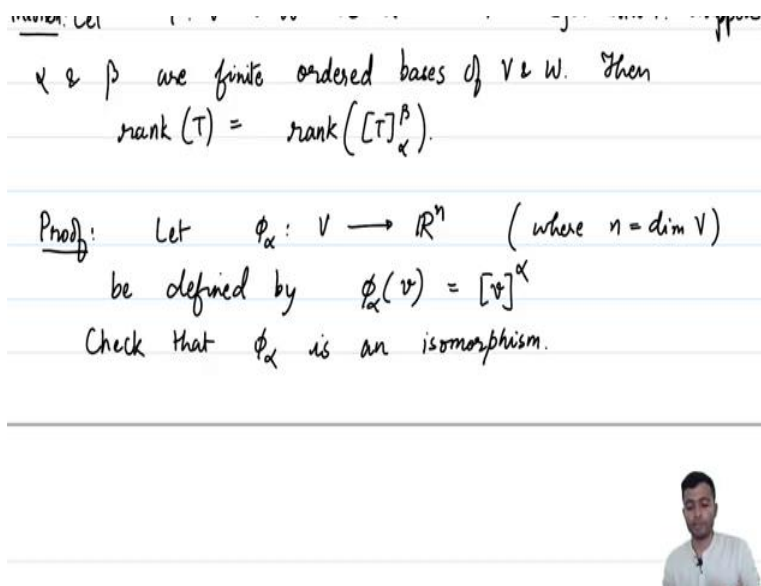 α & β are finite ordered bases of V & W. Then
rank (T) = rank([T]_α^β).
Proof: Let ϕ_α : V ⟶ ℝ^n (where n = dim V)
be defined by ϕ_α(v) = [v]^α
Check that ϕ_α is an isomorphism.